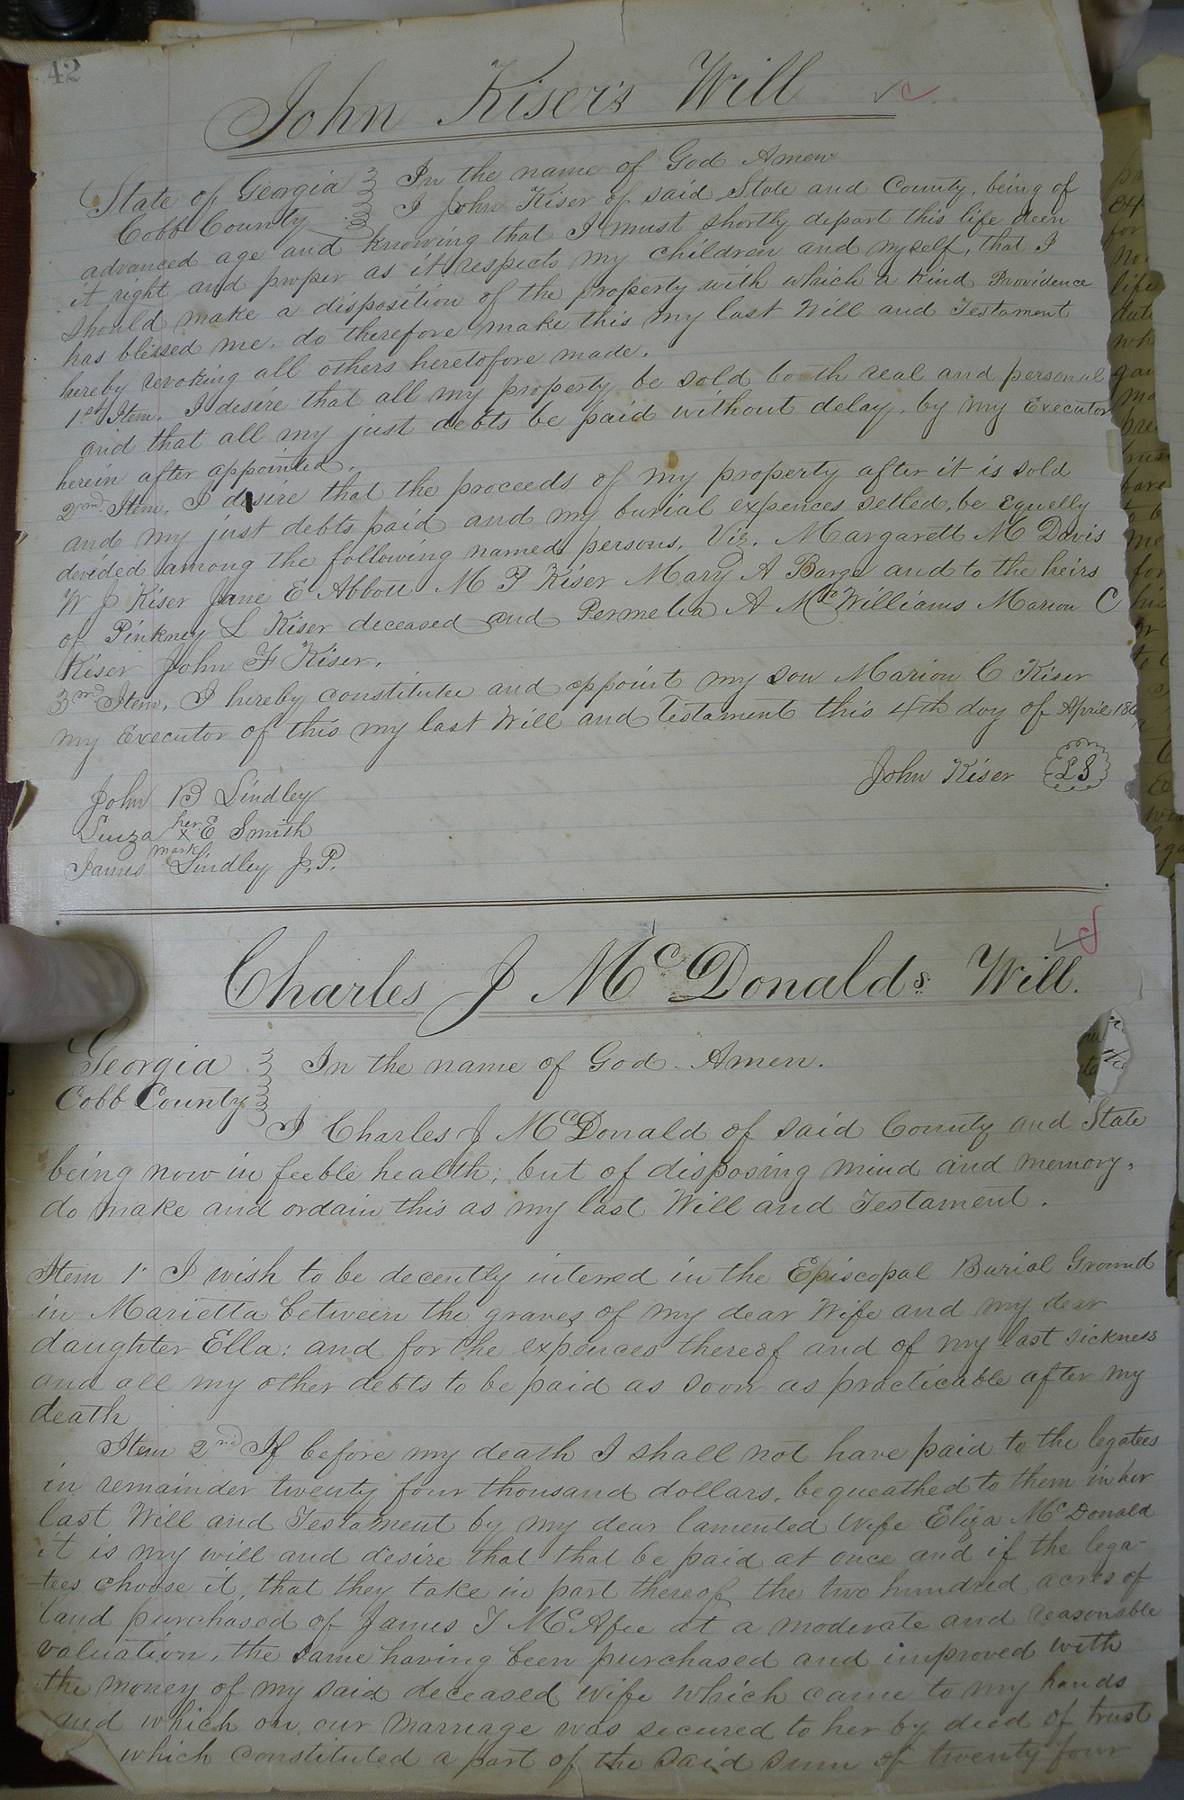 42
John Kiser's Will
State of Georgia } In the name of God Amen
Cobb County } I John Kiser of said State and County, being of
advanced age and knowing that I must shortly depart this life deem
it right and proper as it respects my children and myself, that I
should make a disposition of the property with which a kind Providence
has blessed me. do therefore make this my last Will and Testament
hereby revoking all others heretofore made.
1st Item. I desire that all my property be sold both real and personal
and that all my just debts be paid without delay, by my Executor
herein after appointed.
2nd Item. I desire that the proceeds of my property after it is sold
and my just debts paid and my burial expences setled, be Equelly
devided among the following named persons, Viz. Margarett M Davis
W J Kiser Jane E Abbott M P Kiser Mary A Barge and to the heirs
of Pinkney L Kiser deceased and Permelia A McWilliams Marion C
Kiser John F Kiser.
3rd Item. I hereby constitutee and appoint my son Marion C Kiser
my Executor of this my last Will and Testament this 4th day of April 186
John Kiser LS
John B Lindley
her
E Smith
mark
James Lindley J.P.
Charles J McDonalds Will.
Georgia } In the name of God. Amen.
Cobb County }
I Charles J McDonald of said County and State
being now in feeble health; but of disposing mind and memory,
do make and ordain this as my last Will and Testament.
Item 1. I wish to be decently interred in the Episcopal Burial Ground
in Marietta between the graves of my dear Wife and my dear
daughter Ella: and for the expences thereof and of my last sickness
and all my other debts to be paid as soon as practicable after my
death
Item 2nd If before my death I shall not have paid to the legatees
in remainder twenty four thousand dollars, bequeathed to them in her
last Will and Testament by my dear lamented Wife Eliza McDonald
it is my will and desire that that be paid at once and if the lega-
-tees choose it, that they take in part thereof the two hundred acres of
land purchased of James T McAfee at a moderate and reasonable
valuation, the same having been purchased and improved with
the money of my said deceased wife which came to my hands
and which on our marriage was secured to her by deed of trust
which constituted a part of the said sum of twenty four